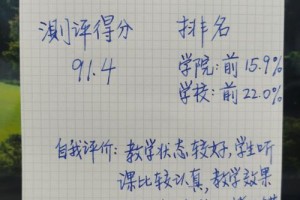 测评得分 排名
91.4 学院:前15.9%
学校:前22.0%
自我评价:教学状态较好,学生听
课比较认真,教学效果